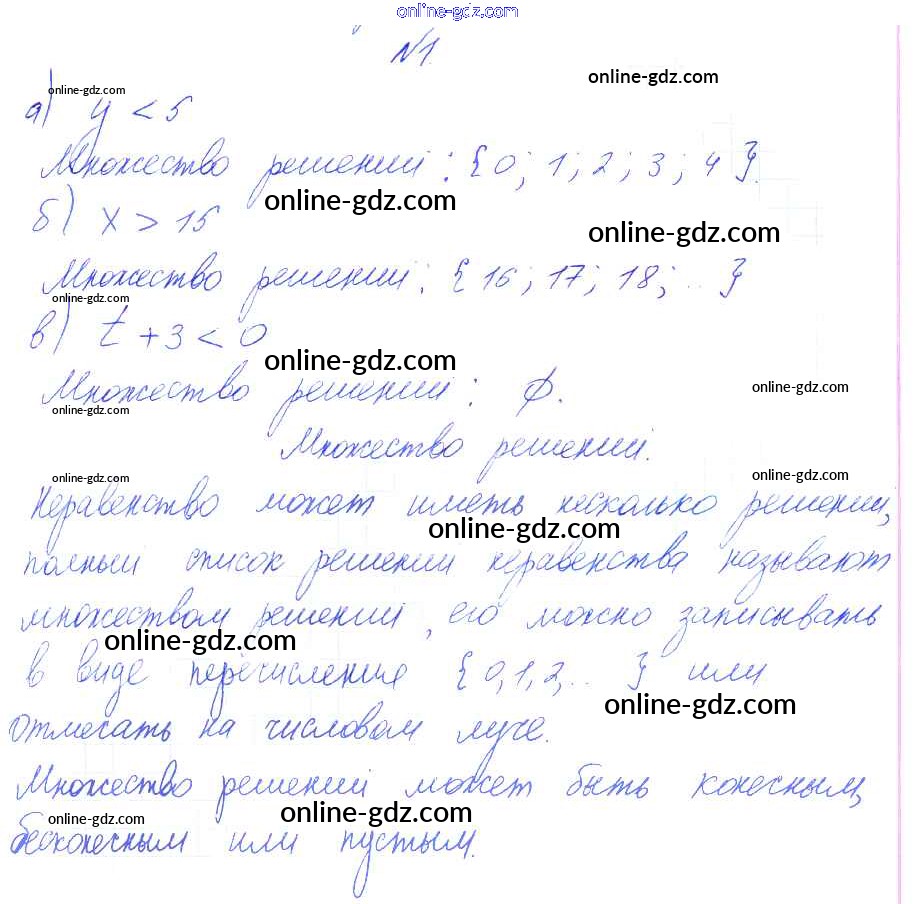 online-gdz.com
№1.
online-gdz.com
online-gdz.com
а) y < 5
Множество решений: {0; 1; 2; 3; 4}.
online-gdz.com
б) x > 15
online-gdz.com
Множество решений: {16; 17; 18; ...}
online-gdz.com
в) t + 3 < 0
online-gdz.com
Множество решений: ∅.
online-gdz.com
online-gdz.com
Множество решений.
online-gdz.com
online-gdz.com
Неравенство может иметь несколько решений,
online-gdz.com
полный список решений неравенства называют
множеством решений, его можно записывать
online-gdz.com
в виде перечисления {0,1,2,... } или
online-gdz.com
отмечать на числовом луче.
Множество решений может быть конечным,
online-gdz.com
online-gdz.com
online-gdz.com
бесконечным или пустым.